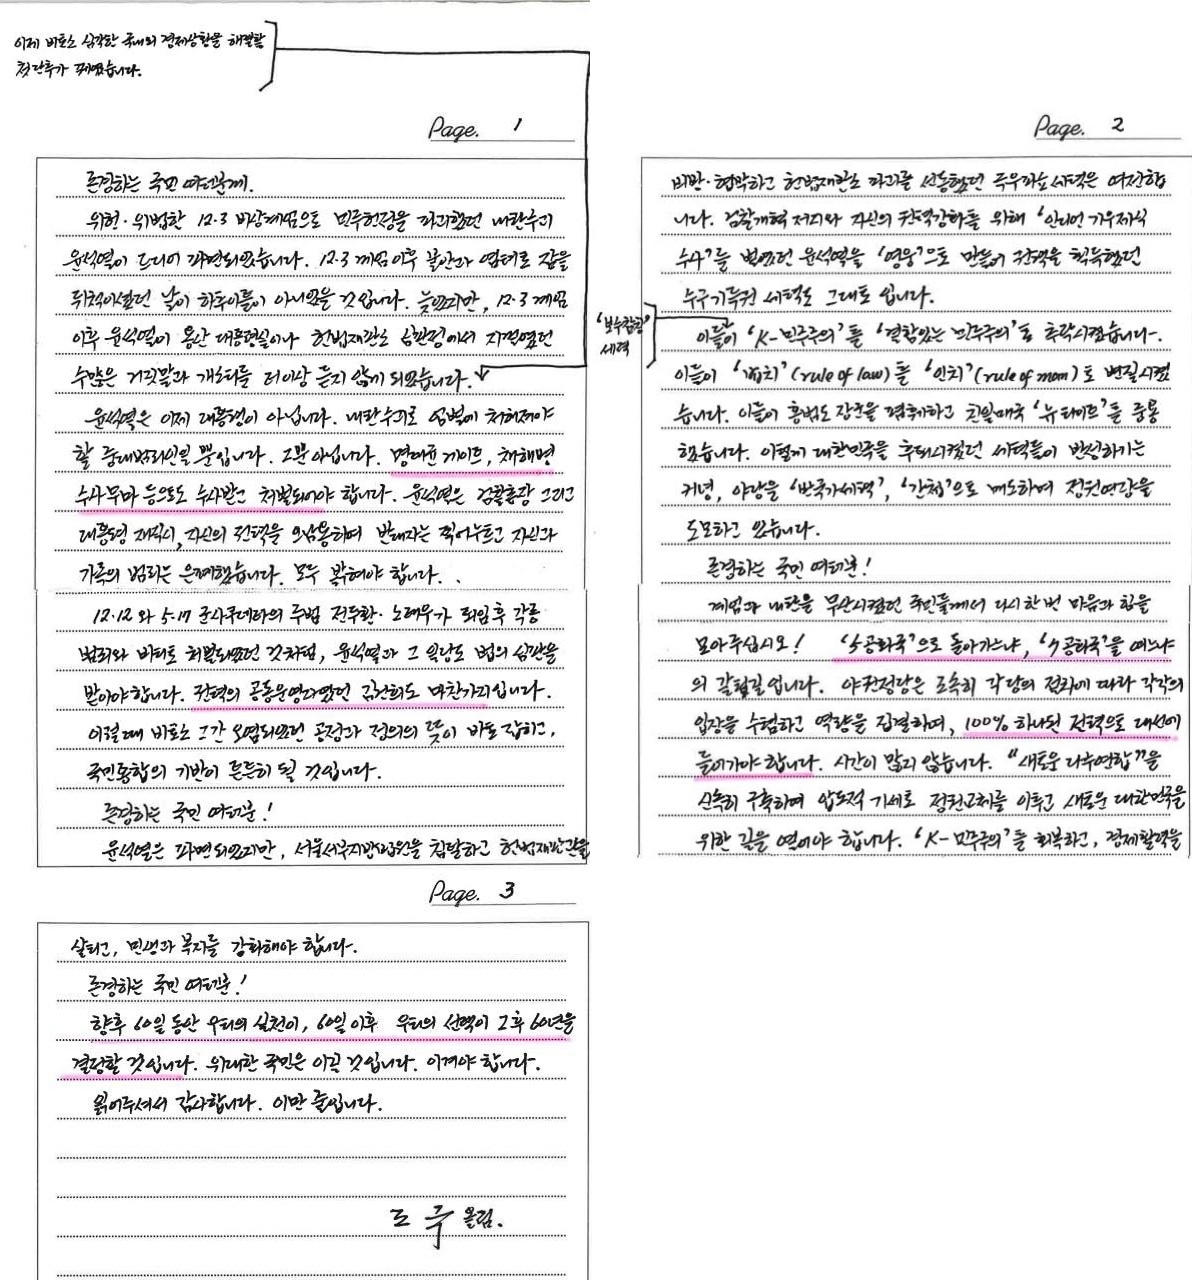 이제 비로소 심각한 국내외 경제상황을 해결할
첫단추가 꿰였습니다.
Page. 1
존경하는 국민 여러분께.
위헌·위법한 12·3 비상계엄으로 민주헌정을 파괴했던 내란수괴
윤석열이 드디어 파면되었습니다. 12·3 계엄이후 불안과 염려로 잠을
뒤척이셨던 날이 하루이틀이 아니었을 것입니다. 늦었지만, 12·3 계엄
이후 윤석열이 용산 대통령실이나 헌법재판소 심판정에서 지껄였던
수많은 거짓말과 개소리를 더이상 듣지 않게 되었습니다.
윤석열은 이제 대통령이 아닙니다. 내란수괴로 엄벌에 처해져야
할 중대범죄인일 뿐입니다. 그뿐 아닙니다. 명태균 게이트, 채해병
수사무마 등으로도 수사받고 처벌되어야 합니다. 윤석열은 검찰총장 그리고
대통령 재직시, 자신의 권력을 오남용하며 반대자는 찍어누르고 자신과
가족의 범죄는 은폐했습니다. 모두 밝혀야 합니다.
12·12와 5·17 군사쿠데타의 주범 전두환·노태우가 퇴임 후 각종
범죄와 비리로 처벌되었던 것처럼, 윤석열과 그 일당도 법의 심판을
받아야 합니다. 권력의 공동운영자였던 김건희도 마찬가지입니다.
이럴 때 비로소 그간 오염되었던 공정과 정의의 뜻이 바로 잡히고,
국민통합의 기반이 튼튼히 될 것입니다.
존경하는 국민 여러분!
윤석열은 파면되었지만, 서울서부지방법원을 침탈하고 헌법재판관을
Page. 2
비방·협박하고 헌법재판소 파괴를 선동했던 극우파쇼세력은 여전합
니다. 검찰개혁 저지와 자신의 권력강화를 위해 '인디언 기우제식
수사'를 벌였던 윤석열을 '영웅'으로 만들어 권력을 획득했던
수구기득권 세력도 그대로 입니다.
'보수참칭'
세력
이들이 'K-민주주의'를 '결함있는 민주주의'로 추락시켰습니다.
이들이 '法치' (rule of law)를 '인치' (rule of man)로 변질시켰
습니다. 이들이 홍범도 장군을 폄훼하고 친일매국 '뉴라이트'를 중용
했습니다. 이렇게 대한민국을 후퇴시켰던 세력들이 반성하기는
커녕, 야당을 '반국가세력', '간첩'으로 매도하며 정권연장을
도모하고 있습니다.
존경하는 국민 여러분!
계엄과 내란을 무산시켰던 국민들께서 다시 한번 마음과 힘을
모아주십시오! '5공화국'으로 돌아가느냐, '7공화국'을 여느냐
의 갈림길입니다. 야권정당은 조속히 각당의 절차에 따라 각각의
입장을 수렴하고 역량을 집결하여, 100% 하나된 전력으로 대선에
들어가야 합니다. 시간이 많지 않습니다. "새로운 다수연합"을
신속히 구축하여 압도적 기세로 정권교체를 이루고 새로운 대한민국을
위한 길을 열어야 합니다. 'K-민주주의'를 회복하고, 경제활력을
Page. 3
살리고, 민생과 복지를 강화해야 합니다.
존경하는 국민 여러분!
향후 60일 동안 우리의 실천이, 60일 이후 우리의 선택이 그후 60년을
결정할 것입니다. 위대한 국민은 이길 것입니다. 이겨야 합니다.
읽어주셔서 감사합니다. 이만 줄입니다.
조 국 올림.